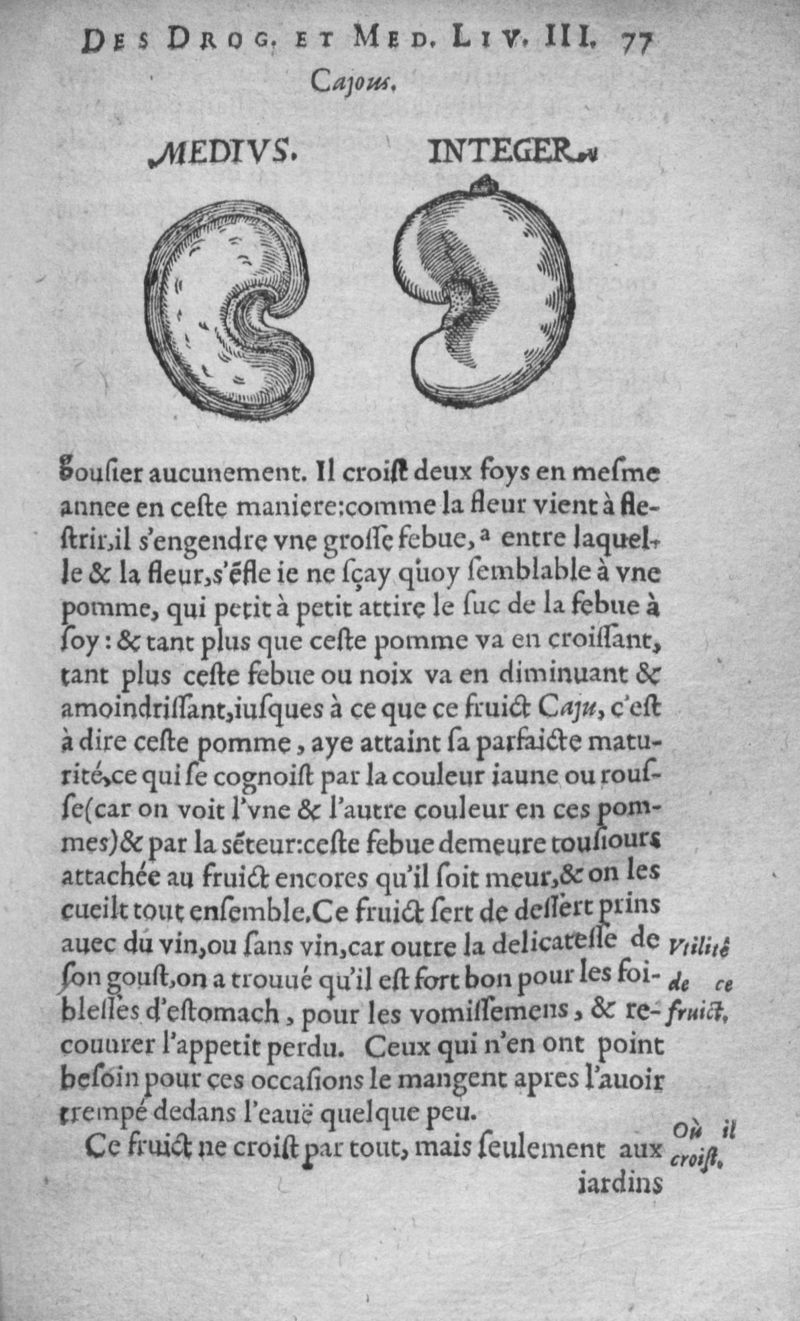 DES DROG. ET MED. LIV. III. 77
Cajous.
MEDIVS. INTEGER.
gousier aucunement. Il croist deux foys en mesme
annee en ceste maniere:comme la fleur vient à fle-
strir,il s'engendre vne grosse febue, a entre laquel-
le & la fleur,s'éfle ie ne sçay quoy semblable à vne
pomme, qui petit à petit attire le suc de la febue à
soy : & tant plus que ceste pomme va en croissant,
tant plus ceste febue ou noix va en diminuant &
amoindrissant,iusques à ce que ce fruict Caju, c'est
à dire ceste pomme, aye attaint sa parfaicte matu-
rité,ce qui se cognoist par la couleur iaune ou rous-
se(car on voit l'vne & l'autre couleur en ces pom-
mes)& par la séteur:ceste febue demeure tousiours
attachée au fruict encores qu'il soit meur,& on les
cueilt tout ensemble.Ce fruict sert de dessert prins
auec du vin,ou sans vin,car outre la delicatesse de
son goust,on a trouué qu'il est fort bon pour les foi-
blesses d'estomach, pour les vomissemens, & re-
couurer l'appetit perdu. Ceux qui n'en ont point
besoin pour ces occasions le mangent apres l'auoir
trempé dedans l'eauë quelque peu.
Vtilité
de ce
fruict.
Ce fruict ne croist par tout, mais seulement aux
iardins
Où il
croist.